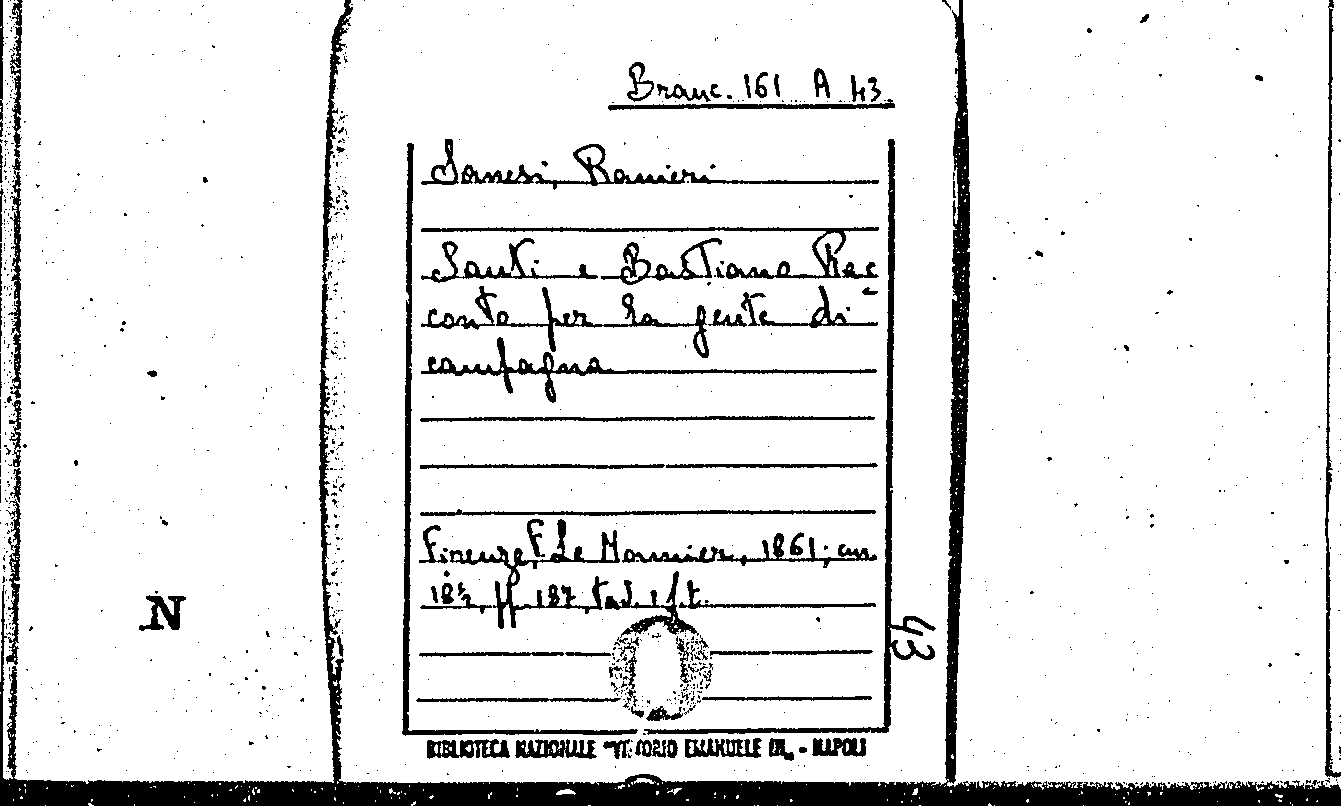 Branc. 161 A 43.
Sanesi, Ranieri
Santi e Bastiano Rac
conto per la gente di
campagna
Firenze, F. Le Monnier, 1861; cm
18½, pp. 187, tav. 1 f.t.
N
43
BIBLIOTECA NAZIONALE "VITTORIO EMANUELE III„ - NAPOLI